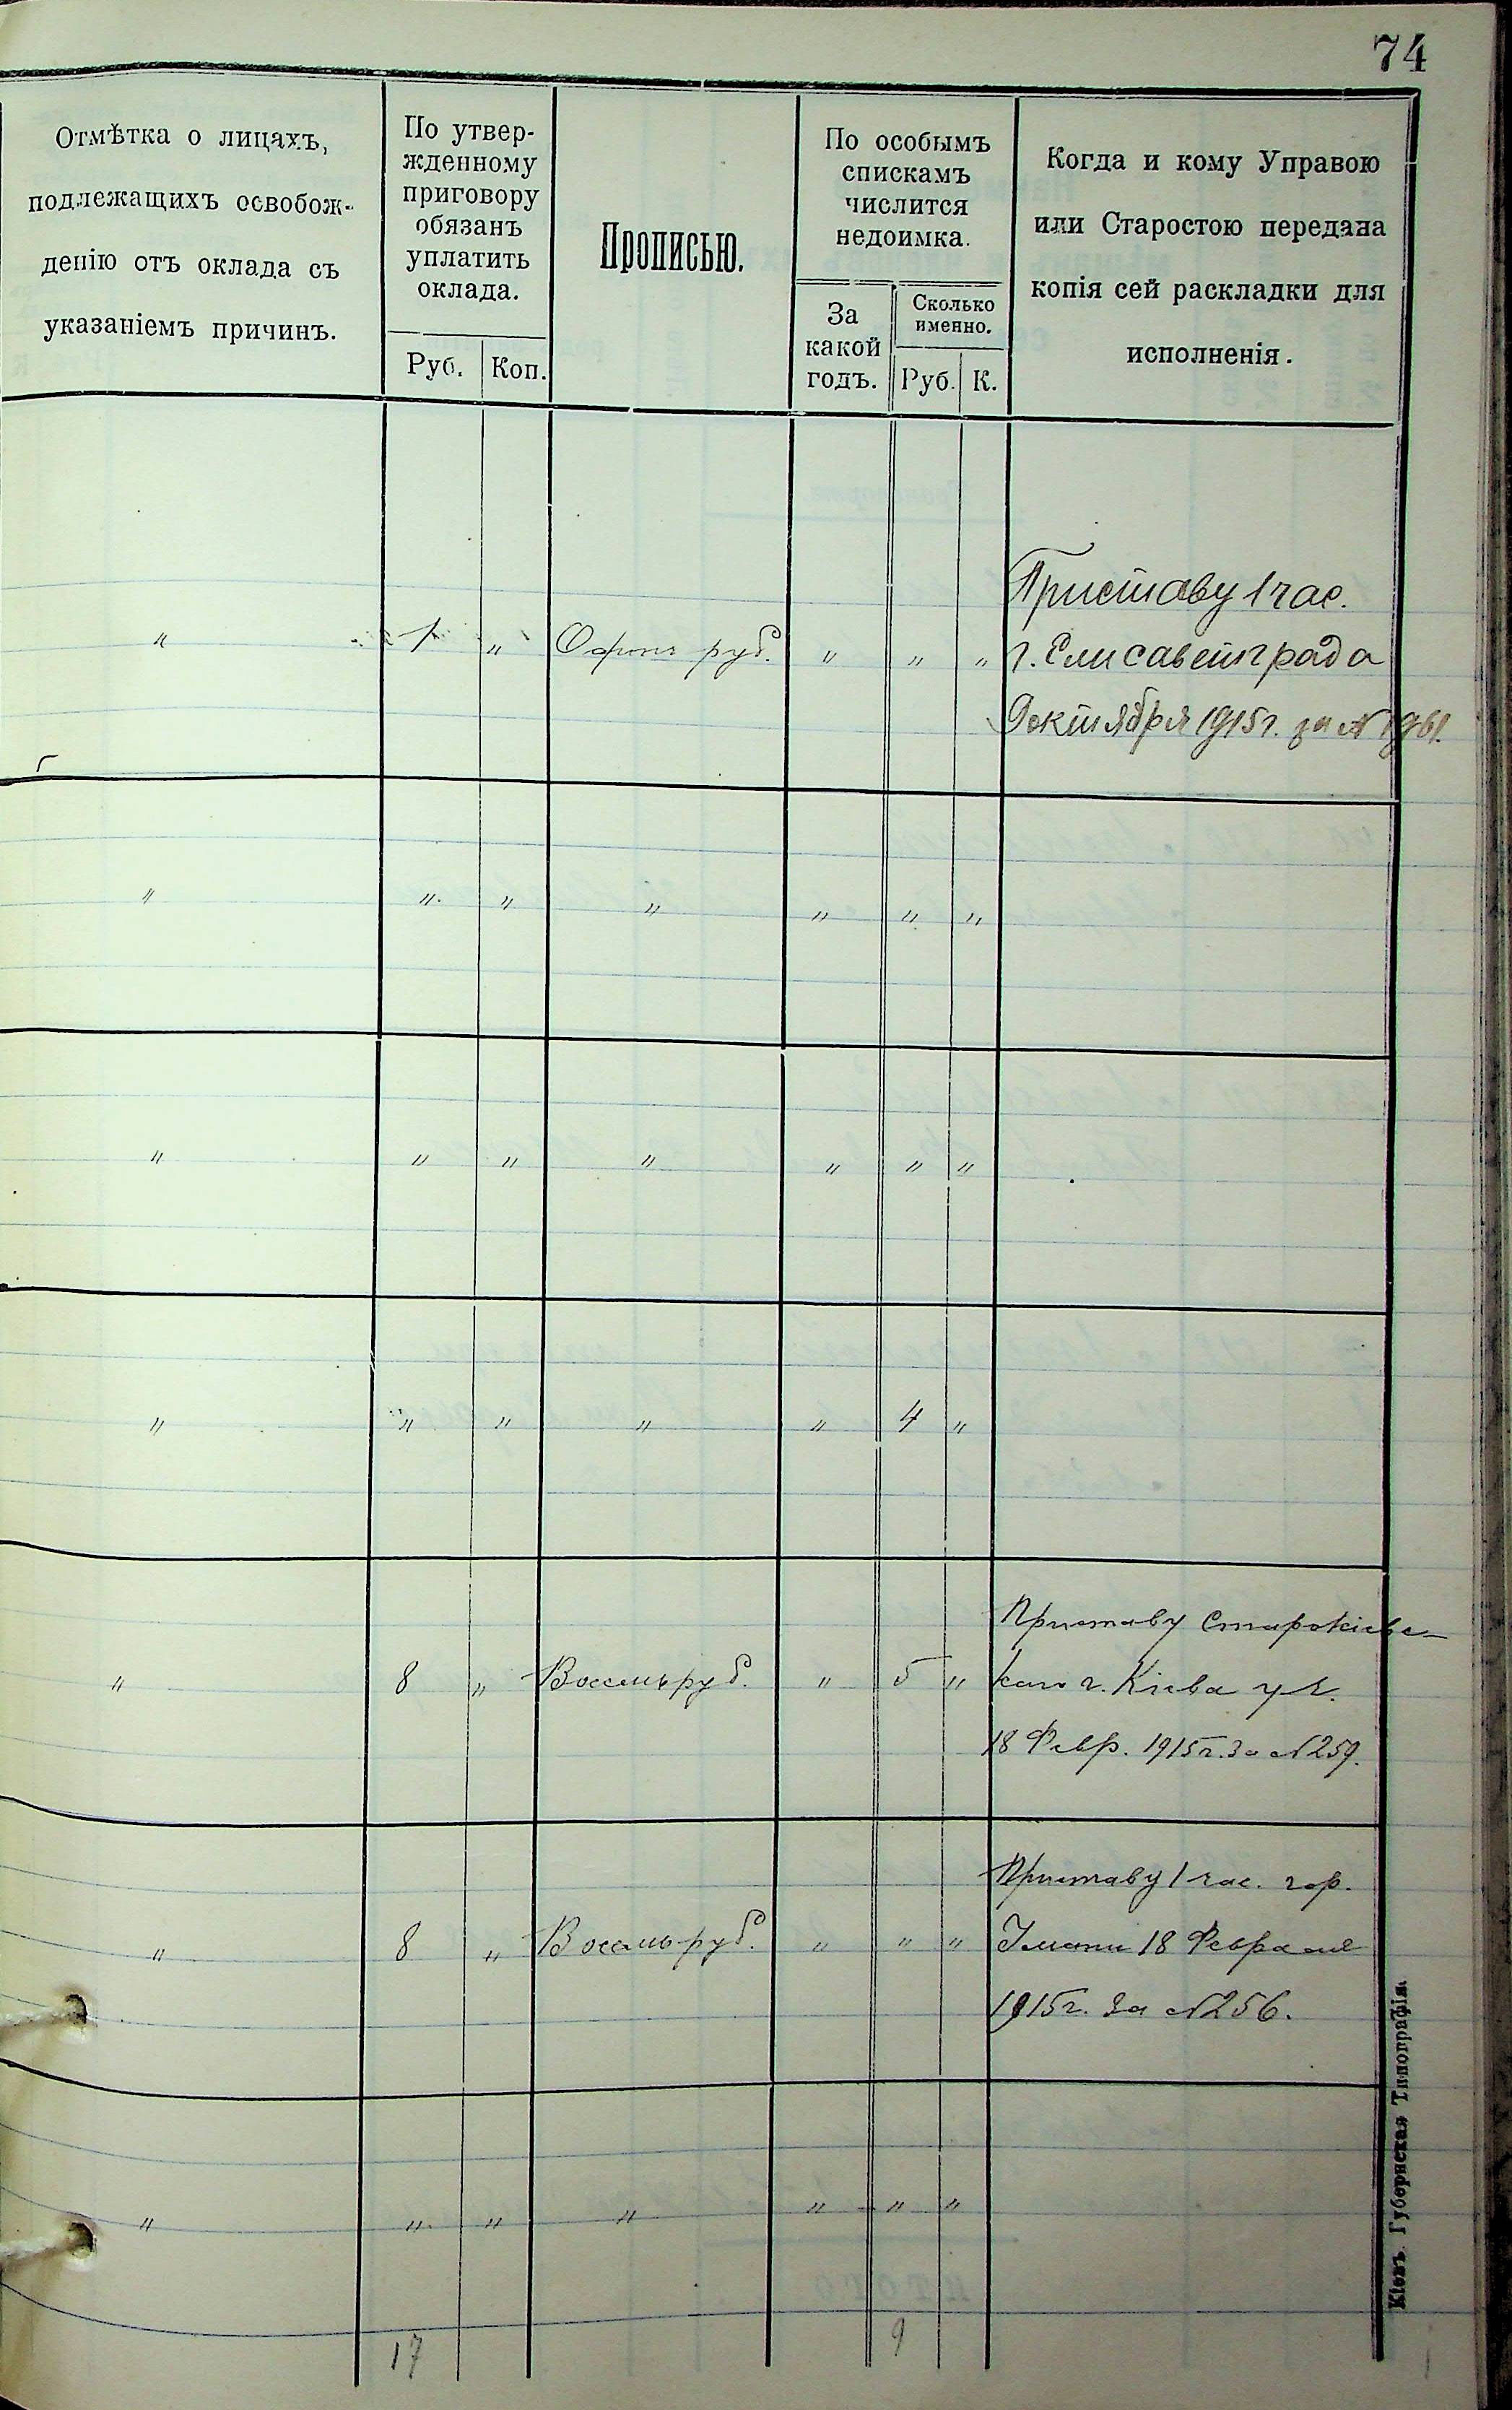 74
Отмѣтка о лицахъ,
подлежащихъ освобож-
денію отъ оклада съ
указаніемъ причинъ.
По утвер-
жденному
приговору
обязанъ
уплатить
оклада.
Руб.
Коп.
Прописью.
По особымъ
спискамъ
числится
недоимка.
За
какой
годъ.
Сколько
именно.
Руб.
К.
Когда и кому Управою
или Старостою передана
копія сей раскладки для
исполненія.
" 1 " Одинъ руб. " " "
Приставу 1 час.
г. Елисаветграда
9 октября 1915 г. за № 1961.
" " " " " " "
" " " " " " "
" " " " " 4 "
" 8 " Восемь руб. " 5 "
Приставу Старокіевс-
каго г. Кіева уч.
18 Февр. 1915 г. за № 259.
" 8 " Восемь руб. " " "
Приставу 1 час. гор.
Умани 18 Февраля
1915 г. за № 256.
" " " " " " "
17 9
Кіевъ. Губернская Типографія.